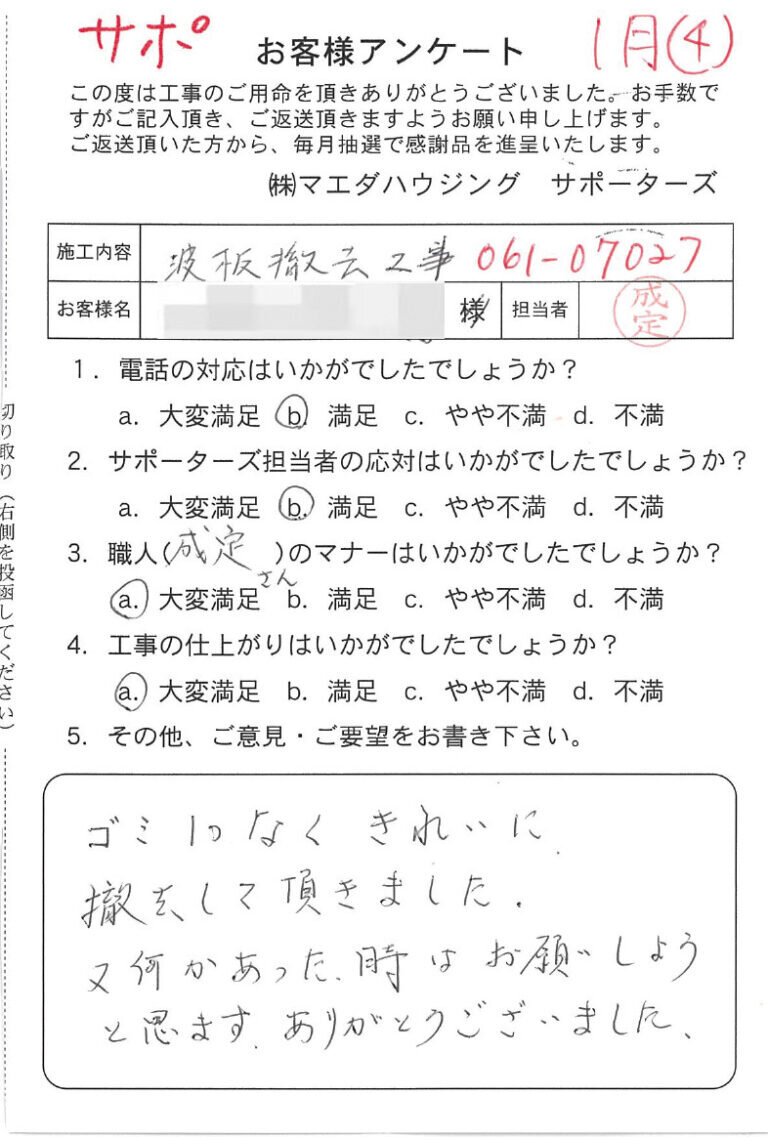 サポ お客様アンケート 1月④
この度は工事のご用命を頂きありがとうございました。お手数で
すがご記入頂き、ご返送頂きますようお願い申し上げます。
ご返送頂いた方から、毎月抽選で感謝品を進呈いたします。
㈱マエダハウジング サポーターズ
施工内容 波板撤去工事 061-07027
お客様名 様 担当者 成定
1. 電話の対応はいかがでしたでしょうか？
a. 大変満足 b. 満足 c. やや不満 d. 不満
2. サポーターズ担当者の応対はいかがでしたでしょうか？
a. 大変満足 b. 満足 c. やや不満 d. 不満
3. 職人(成定さん)のマナーはいかがでしたでしょうか？
a. 大変満足 b. 満足 c. やや不満 d. 不満
4. 工事の仕上がりはいかがでしたでしょうか？
a. 大変満足 b. 満足 c. やや不満 d. 不満
5. その他、ご意見・ご要望をお書き下さい。
ゴミ1つなくきれいに
撤去して頂きました.
又何かあった時はお願いしよう
と思ます.ありがとうございました、
切り取り（右側を投函してください）